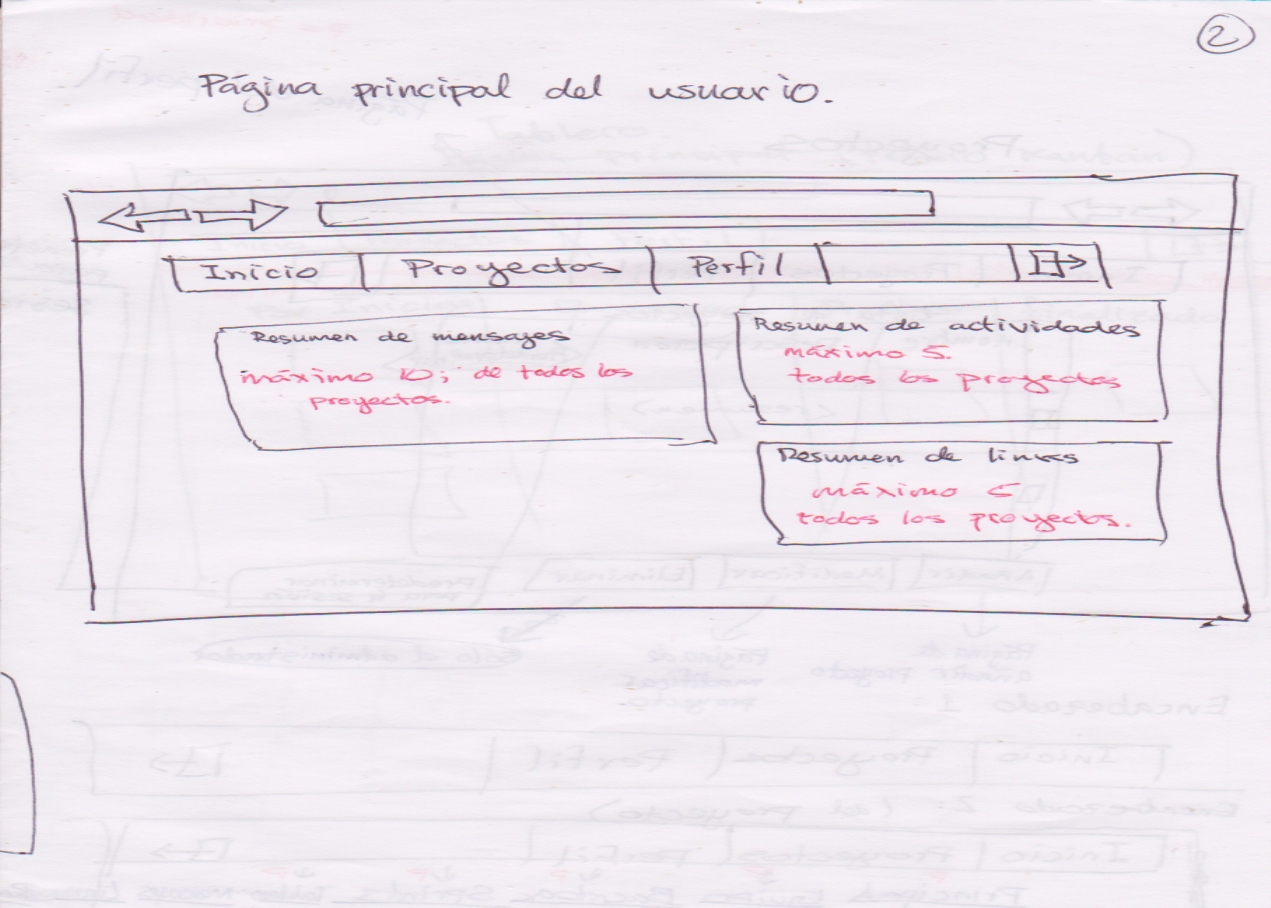 2
Página principal del usuario.
Inicio Proyectos Perfil
Resumen de mensajes
máximo 10; de todos los
proyectos.
Resumen de actividades
máximo 5.
todos los proyectos
Resumen de links
máximo 5
todos los proyectos.